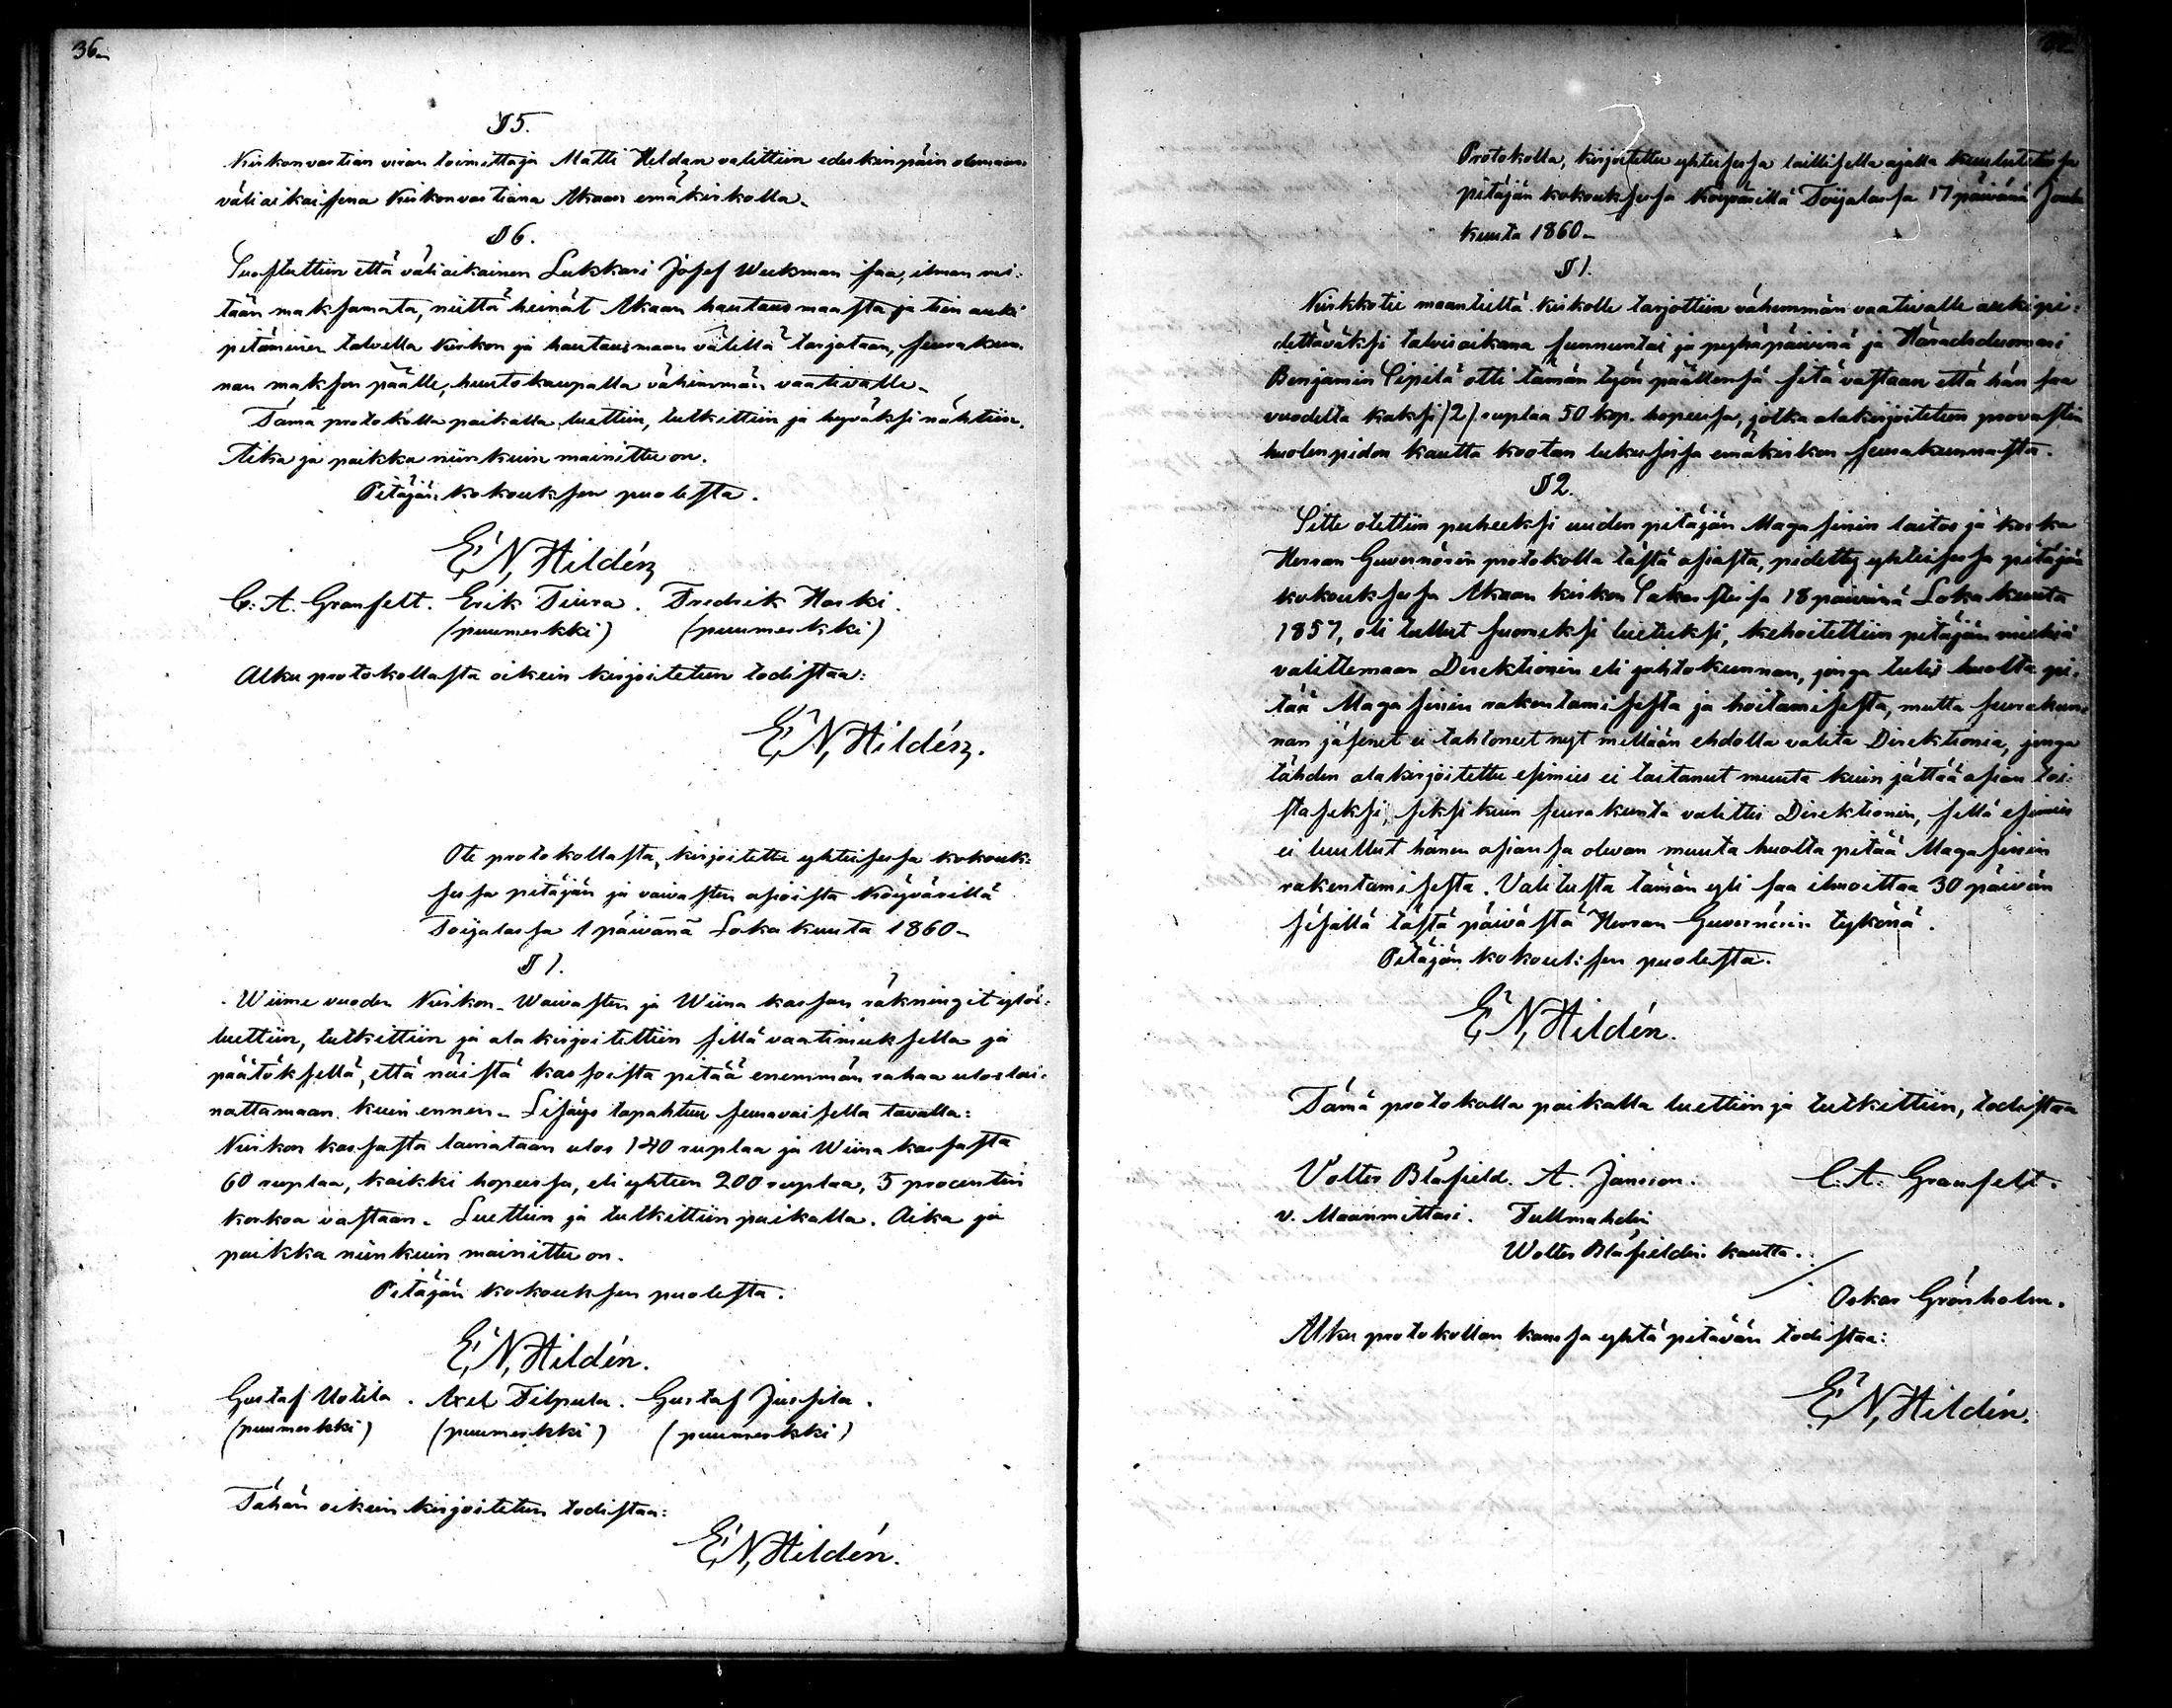 36.
§ 5.
Kirkonvartian viran toimittaja Matti Heldan valittiin edeskinpäin olemaan
väliaikaisena Kirkonvartiana Akaan emäkirkolla.
§ 6.
Suostuttiin että väliaikainen Lukkari Josef Weckman saa, ilman mi-
tään maksamata, niittä heinät Akaan hautausmaasta ja tien auki
pitäminen talvella kirkon ja hautausmaan välillä tarjotaan, seurakun-
nan maksun päälle, huutokaupalla vähimmän vaativalle.
Tämä protokolla paikalla luettiin, tutkittiin ja hyväksi nähtiin.
Aika ja paikka niinkuin mainittu on.
Pitäjän kokouksen puolesta.
E. N. Hildén
C. A. Granfelt. Erik Tiura. Fredrik Harki.
(puumerkki) (puumerkki)
Alku protokollasta oikein kirjoitetun todistaa:
E. N. Hildén.
Ote protokollasta, kirjoitettu yhteisessa kokouk-
sessa pitäjän ja vaivasten asioista Köyvärillä
Toijalassa 1 päivänä Lokakuuta 1860.
§ 1.
Wiime vuoden Kirkon- Waivasten ja Wiina kassan räkningit ylös-
luettiin, tutkittiin ja alakirjoitettiin sillä vaatimuksella ja
päätöksellä, että näistä kassoista pitää enemmän rahaa uloslai-
nattamaan kuin ennen. Lisäys tapahtuu seuravaisella tavalla:
Kirkon kassasta lainataan ulos 140 ruplaa ja Wiina kassasta
60 ruplaa, kaikki hopeassa, eli yhteen 200 ruplaa, 5 procentin
korkoa vastaan. Luettiin ja tutkittiin paikalla. Aika ja
paikka niinkuin mainittu on.
Pitäjän kokouksen puolesta.
E. N. Hildén.
Gustaf Uotila. Axel Filpula. Gustaf Jussila.
(puumerkki) (puumerkki) (puumerkki)
Tähän oikein kirjoitetun todistaa:
E. N. Hildén.
Protokolla, kirjoitettu yhteisessa laillisella ajalla kuulutetussa
pitäjän kokouksessa Köyvärillä Toijalassa 17 päivänä Joulu
kuuta 1860.
§ 1.
Kirkkotie maantieltä kirkolle tarjottiin vähemmän vaativalle aukipi-
dettäväksi talvisaikana sunnuntai ja pyhäpäivinä ja Häradsduomari
Benjamin Sipilä otti tämän työn päällensä sitä vastaan että hän saa
vuodelta kaksi /2/ ruplaa 50 kop. hopeassa, jotka alakirjoitetun provastin
huolenpidon kautta kootan lukusissa emäkirkon seurakunnasta.
§ 2.
Sitte otettiin puheeksi uuden pitäjän Magasinin laitos ja koska
Herran Guvernörin protokolla tästä asiasta, pidetty yhteisessa pitäjän
kokouksessa Akaan kirkon Sakastissa 18 päivänä Lokakuuta
1857, oli tullut suomeksi luetuksi, kehoitettiin pitäjän miehiä
valittemaan Direktionin eli johtokunnan, jonga tulis huolta pi-
tää Magasinin rakentamisesta ja hoitamisesta, mutta seurakun-
nan jäsenet ei tahtoneet nyt millään ehdolla valita Direktionia, jonga
tähden alakirjoitettu esimies ei taitanut muuta kuin jättää asian toi-
staseksi, siksi kuin seurakunta valittis Direktionin, sillä esimies
ei luullut hänen asiansa olevan muuta huolta pitää Magasinin
rakentamisesta. Valitusta tämän yli saa ilmoittaa 30 päivän
sisällä tästä päivästä Herran Guvernörin tykönä.
Pitäjän kokouksen puolesta.
E. N. Hildén.
Tämä protokolla paikalla luettiin ja tutkittiin, todistaa
Volter Blåfield. A. Janson. C. A. Granfelt.
v. Maanmittari. Fullmahdin
Wolter Blåfieldin kautta.
Oskar Grönholm.
Alku protokollan kanssa yhtä pitävän todistaa:
E. N. Hildén.